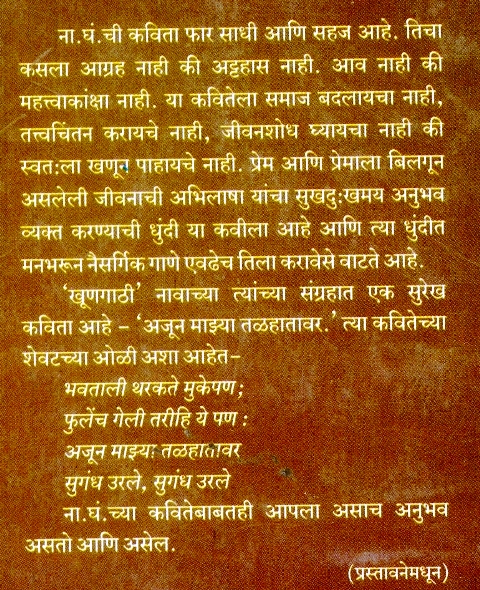 ना.घं.ची कविता फार साधी आणि सहज आहे. तिचा
कसला आग्रह नाही की अट्टहास नाही. आव नाही की
महत्त्वाकांक्षा नाही. या कवितेला समाज बदलायचा नाही,
तत्त्वचिंतन करायचे नाही, जीवनशोध घ्यायचा नाही की
स्वत:ला खणून पाहायचे नाही. प्रेम आणि प्रेमाला बिलगून
असलेली जीवनाची अभिलाषा यांचा सुखदु:खमय अनुभव
व्यक्त करण्याची धुंदी या कवीला आहे आणि त्या धुंदीत
मनभरून नैसर्गिक गाणे एवढेच तिला करावेसे वाटते आहे.
‘खूणगाठी’ नावाच्या त्यांच्या संग्रहात एक सुरेख
कविता आहे – ‘अजून माझ्या तळहातावर.’ त्या कवितेच्या
शेवटच्या ओळी अशा आहेत–
भवताली थरकते मुकेपण;
फुलेंच गेली तरीहि ये पण :
अजून माझ्या तळहातावर
सुगंध उरले, सुगंध उरले
ना.घं.च्या कवितेबाबतही आपला असाच अनुभव
असतो आणि असेल.
(प्रस्तावनेमधून)